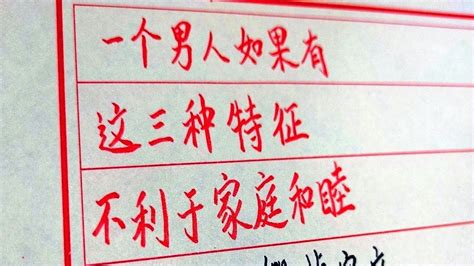 一个男人如果有
这三种特征
不利于家庭和睦